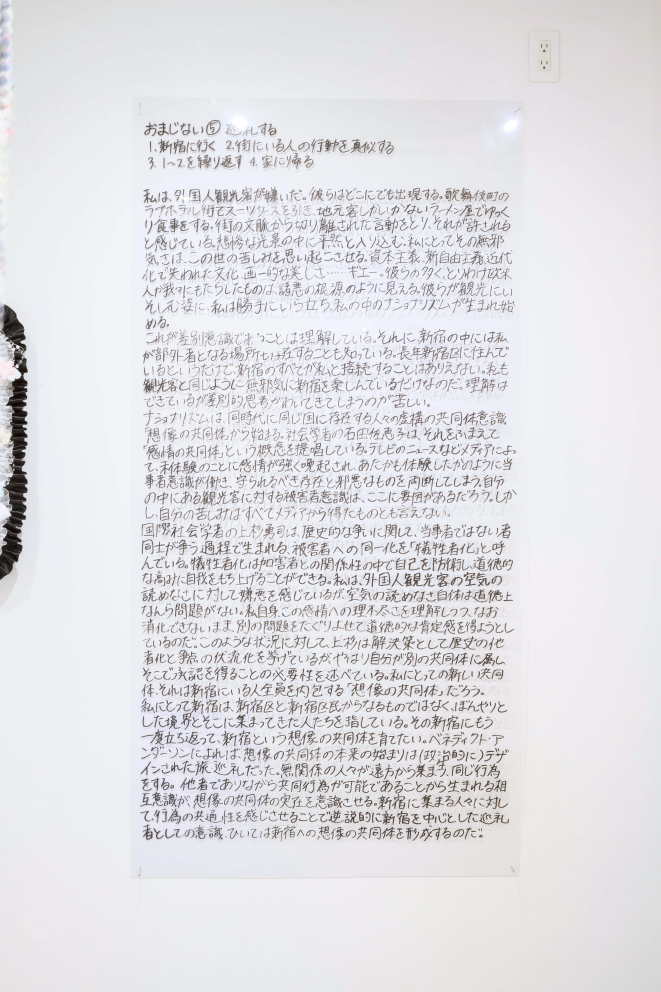 おまじない⑤ 巡礼する
1.新宿に行く 2.街にいる人の行動を真似する
3.1~2を繰り返す 4.家に帰る
私は、外国人観光客が嫌いだ。彼らはどこにでも出現する。歌舞伎町の
ラブホテル街でスーツケースを引き、地元客しかいかないラーメン屋でゆっく
り食事をする。街の文脈から切り離された言動をとり、それが許される
と感じている。悲惨な光景の中に平然と入り込む。私にとってその無邪
気さは、この世の苦しみを思い起こさせる。資本主義、新自由主義、近代
化で失われた文化、画一的な美しさ……ギエー。彼らの多く、とりわけ欧米
人が我々にもたらしたものは、諸悪の根源のように見える。彼らが観光にい
そしむ姿に、私は勝手にいら立ち、私の中のナショナリズムが生まれ始
める。
これが差別意識であることは理解している。それに、新宿の中には私
が部外者となる場所も存在することも知っている。長年新宿区に住んで
いるというだけで、新宿のすべてが私と接続することはありえない。私も
観光客と同じように無邪気に新宿を楽しんでいるだけなのだ。理解は
できているが差別的思考がわいてきてしまうのが苦しい。
ナショナリズムは、同時代に同じ国に存在する人々の虚構の共同体意識
「想像の共同体」から始まる。社会学者の石田佐恵子は、それをふまえて
「感情の共同体」という概念を提唱している。テレビのニュースなどメディアによっ
て、未体験のことに感情が強く喚起され、あたかも体験したかのように当
事者意識が働き、守られるべき存在と邪悪なものを両断してしまう。自分
の中にある観光客に対する被害者意識は、ここに要因があるだろう。しか
し、自分の苦しみはすべてメディアから得たものとも言えない。
国際社会学者の上杉勇司は、歴史的な争いに関して、当事者ではない者
同士が争う過程で生まれる、被害者への同一化を「犠牲者化」と呼
んでいる。犠牲者化は加害者との関係性の中で自己を防衛し、道徳的
な高みに自我をもち上げることができる。私は、外国人観光客の空気の
読めなさに対して嫌悪を感じているが、空気の読めなさ自体は道徳上
なんら問題がない。私自身、この感情への理不尽さを理解しつつ、なお
消化できないまま、別の問題をたぐりよせて道徳的な肯定感を得ようとし
ているのだ。このような状況に対して、上杉は解決策として歴史の他
者化と争点の伏流化を挙げているが、やはり自分が別の共同体に属し、
そこで承認を得ることの必要性を述べている。私にとっての新しい共同
体、それは新宿にいる人全員を内包する「想像の共同体」だろう。
私にとって新宿は、新宿区と新宿区民からなるものではなく、ぼんやりと
した境界とそこに集まってきた人たちを指している。その新宿にもう
一度立ち返って、新宿という想像の共同体を育てたい。ベネディクト・ア
ンダーソンによれば、想像の共同体の本来の始まりは(政治的に)デザ
インされた旅、巡礼だった。無関係の人々が遠方から集まり、同じ行為
をする。他者でありながら共同行為が可能であることから生まれる相
互意識が、想像の共同体の実在を意識させる。新宿に集まる人々に対し
て、行為の共通性を感じさせることで逆説的に新宿を中心とした巡礼
者としての意識、ひいては新宿への想像の共同体を形成するのだ。